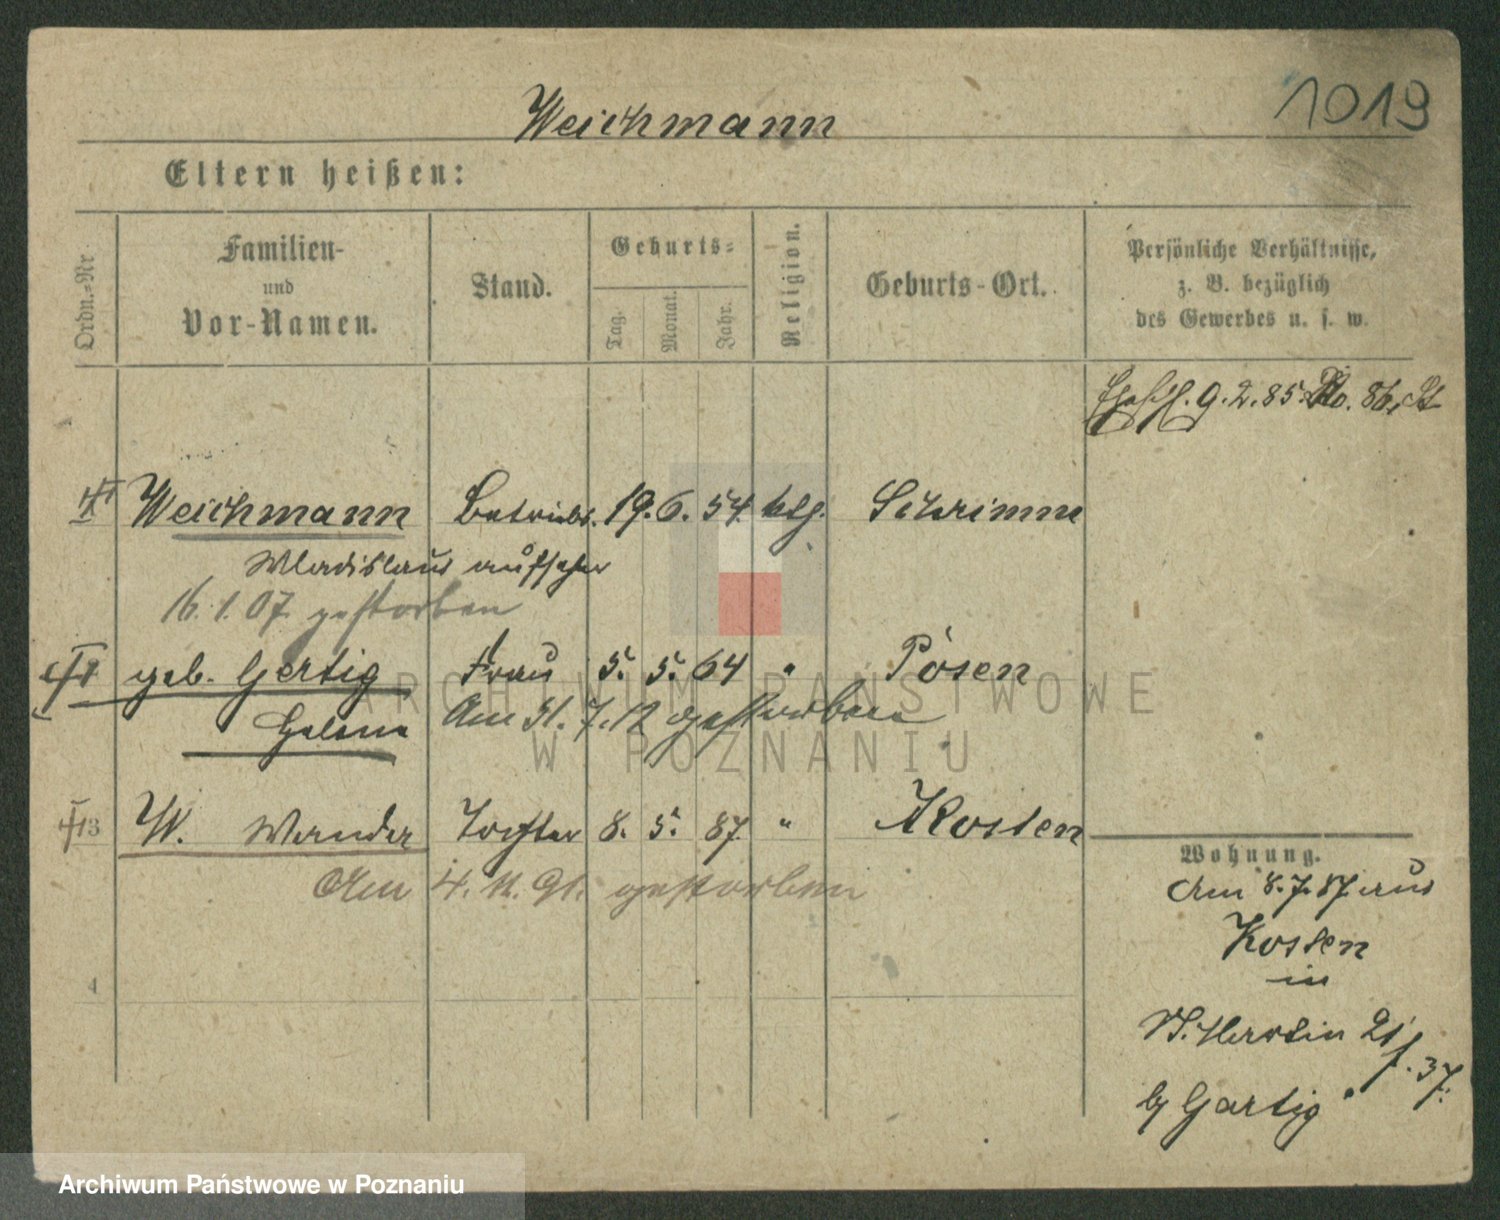 Weichmann
1019
Eltern heißen:
Ordn.=Nr
Familien-
und
Vor-Namen.
Stand.
Geburts=
Tag.
Monat.
Jahr.
Religion.
Geburts-Ort.
Persönliche Verhältnisse,
z. B. bezüglich
des Gewerbes u. s. w.
9.2.85. 86.
Weichmann Betriebs. 19. 6. 54. ktlg. Schrimm
Wladislaus aufseher
16.1.07. gestorben
geb. Gertig Frau 5. 5. 64 " Posen
Helene Am 31.7.12 gestorben
W. Wanda Tochter 8. 5. 87. " Kosten
Am 4. 11. 91. gestorben
4
Wohnung.
Am 8.7.87. aus
Kosten
in
St. Martin 21
f. 37.
b/ Gartig
ARCHIWUM PAŃSTWOWE
W POZNANIU
Archiwum Państwowe w Poznaniu